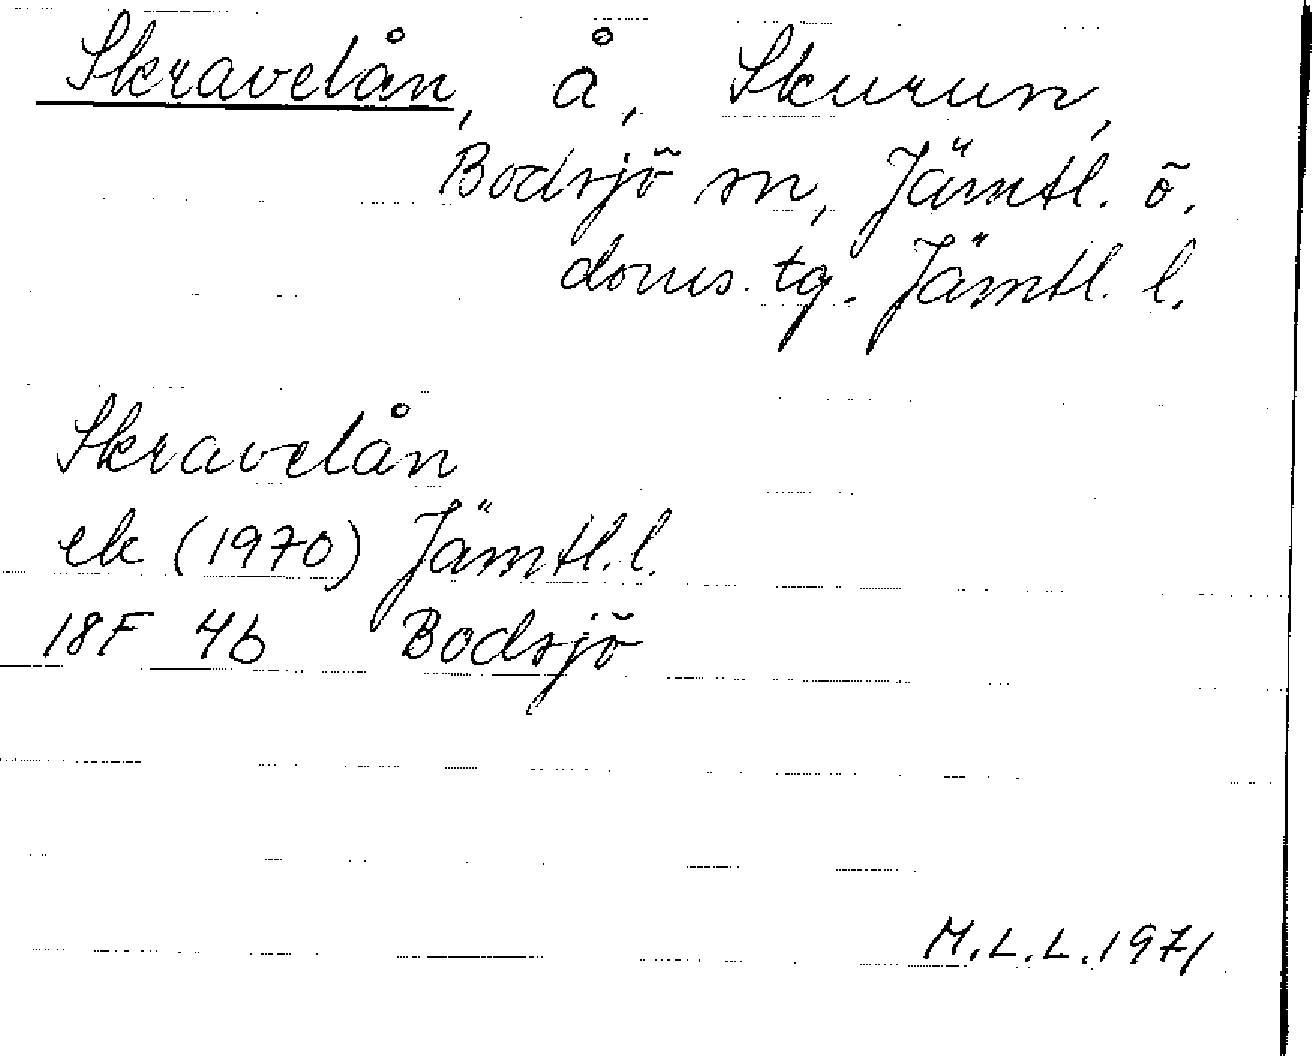 Skravelån, å, Skurun,
Bodsjö sn, Jämtl. ö.
doms. tg. Jämtl. l.
Skravelån
ek (1970) Jämtl. l.
18F 4b Bodsjö
M.L.L. 1971